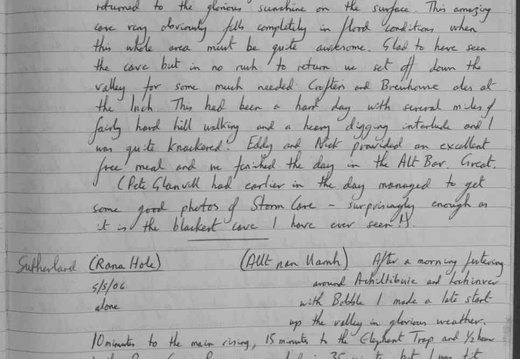 returned to the glorious sunshine on the surface. This amazing
cave very obviously fills completely in flood conditions when
this whole area must be quite awesome. Glad to have seen
the cave but in no rush to return we set off down the
valley for some much needed Crofters and Brewhouse ales at
the Inch. This had been a hard day with several miles of
fairly hard hill walking and a heavy digging interlude and I
was quite knackered! Eddy and Nick provided an excellent
free meal and we finished the day in the Alt Bar. Great.
(Pete Glanvill had earlier in the day managed to get
some good photos of Storm Cave - surprisingly enough as
it is the blackest cave I have ever seen!).
Sutherland (Rana Hole) (Allt nan Uamh) After a morning
5/5/06 around Achiltibuie and Lochinver
alone with Bobble I made a late start
up the valley in glorious weather.
10 minutes to the main rising, 15 minutes to the Elephant Trap and ½ hour